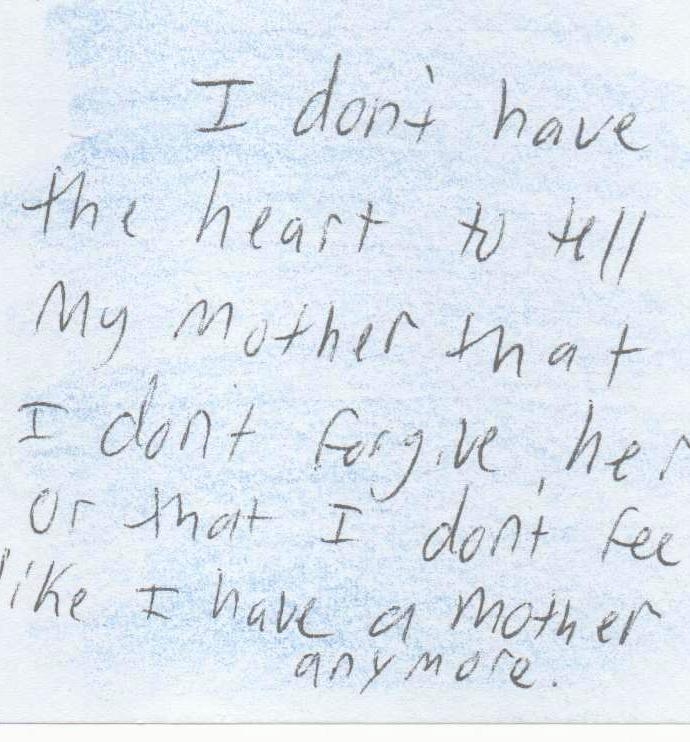 I don't have
the heart to tell
My Mother that
I don't forgive her
or that I don't fee
like I have a Mother
anymore.